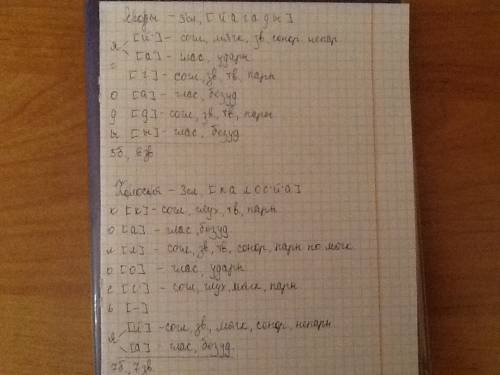 Ягоды – 3сл, [й'агады]
я [й'] – согл, мягк, зв, сонор, непар.
[а] – глас, ударн
[г] – согл, зв, тв, парн
о [а] – глас, безуд
д [д] – согл, зв, тв, парн
ы [ы] – глас, безуд
5б, 6зв
Колосья – 3сл, [калос'й'а]
к [к] – согл, глух, тв, парн
о [а] – глас, безуд
л [л] – согл, зв, тв, сонор, парн по мягк
о [о] – глас, ударн
с [с'] – согл, глух, мягк, парн
ь [–]
я [й'] – согл, зв, мягк, сонор, непарн.
[а] – глас, безуд.
7б, 7зв.